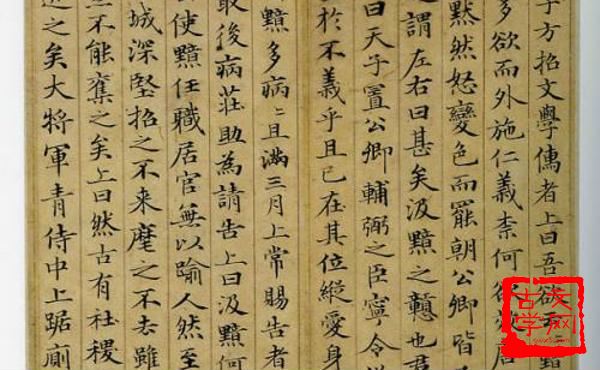 子方招文學儒者上曰吾欲云云黯
多欲而外施仁義柰何欲效唐
默然怒變色而罷朝公卿皆
謂左右曰甚矣汲黯之戇也君
曰天子置公卿輔弼之臣寧令
於不義乎且已在其位縱愛身
黯多病〻且滿三月上常賜告者
最後病莊助為請告上曰汲黯何
使黯任職居官無以踰人然至
城深堅招之不来麾之不去雖
不能奪之矣上曰然古有社稷
之矣大將軍青侍中上踞廁
古文学网